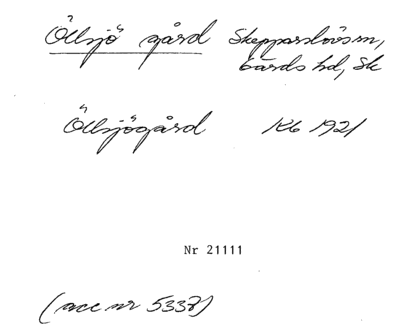 Öllsjö gård Skepparslövs sn,
Gärds hd, Sk
Öllsjögård Kb 1921
Nr 21111
(acc nr 5337)